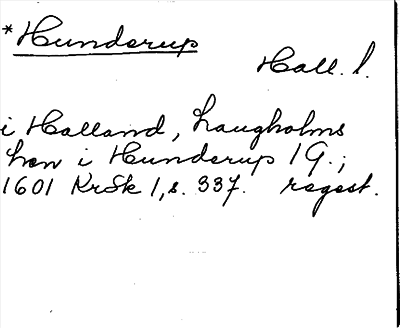 *Hunderup
Hall. l.
i Halland, Laugholms
hen i Hunderup 1 G.;
1601 KrSk 1, s. 337. regest.